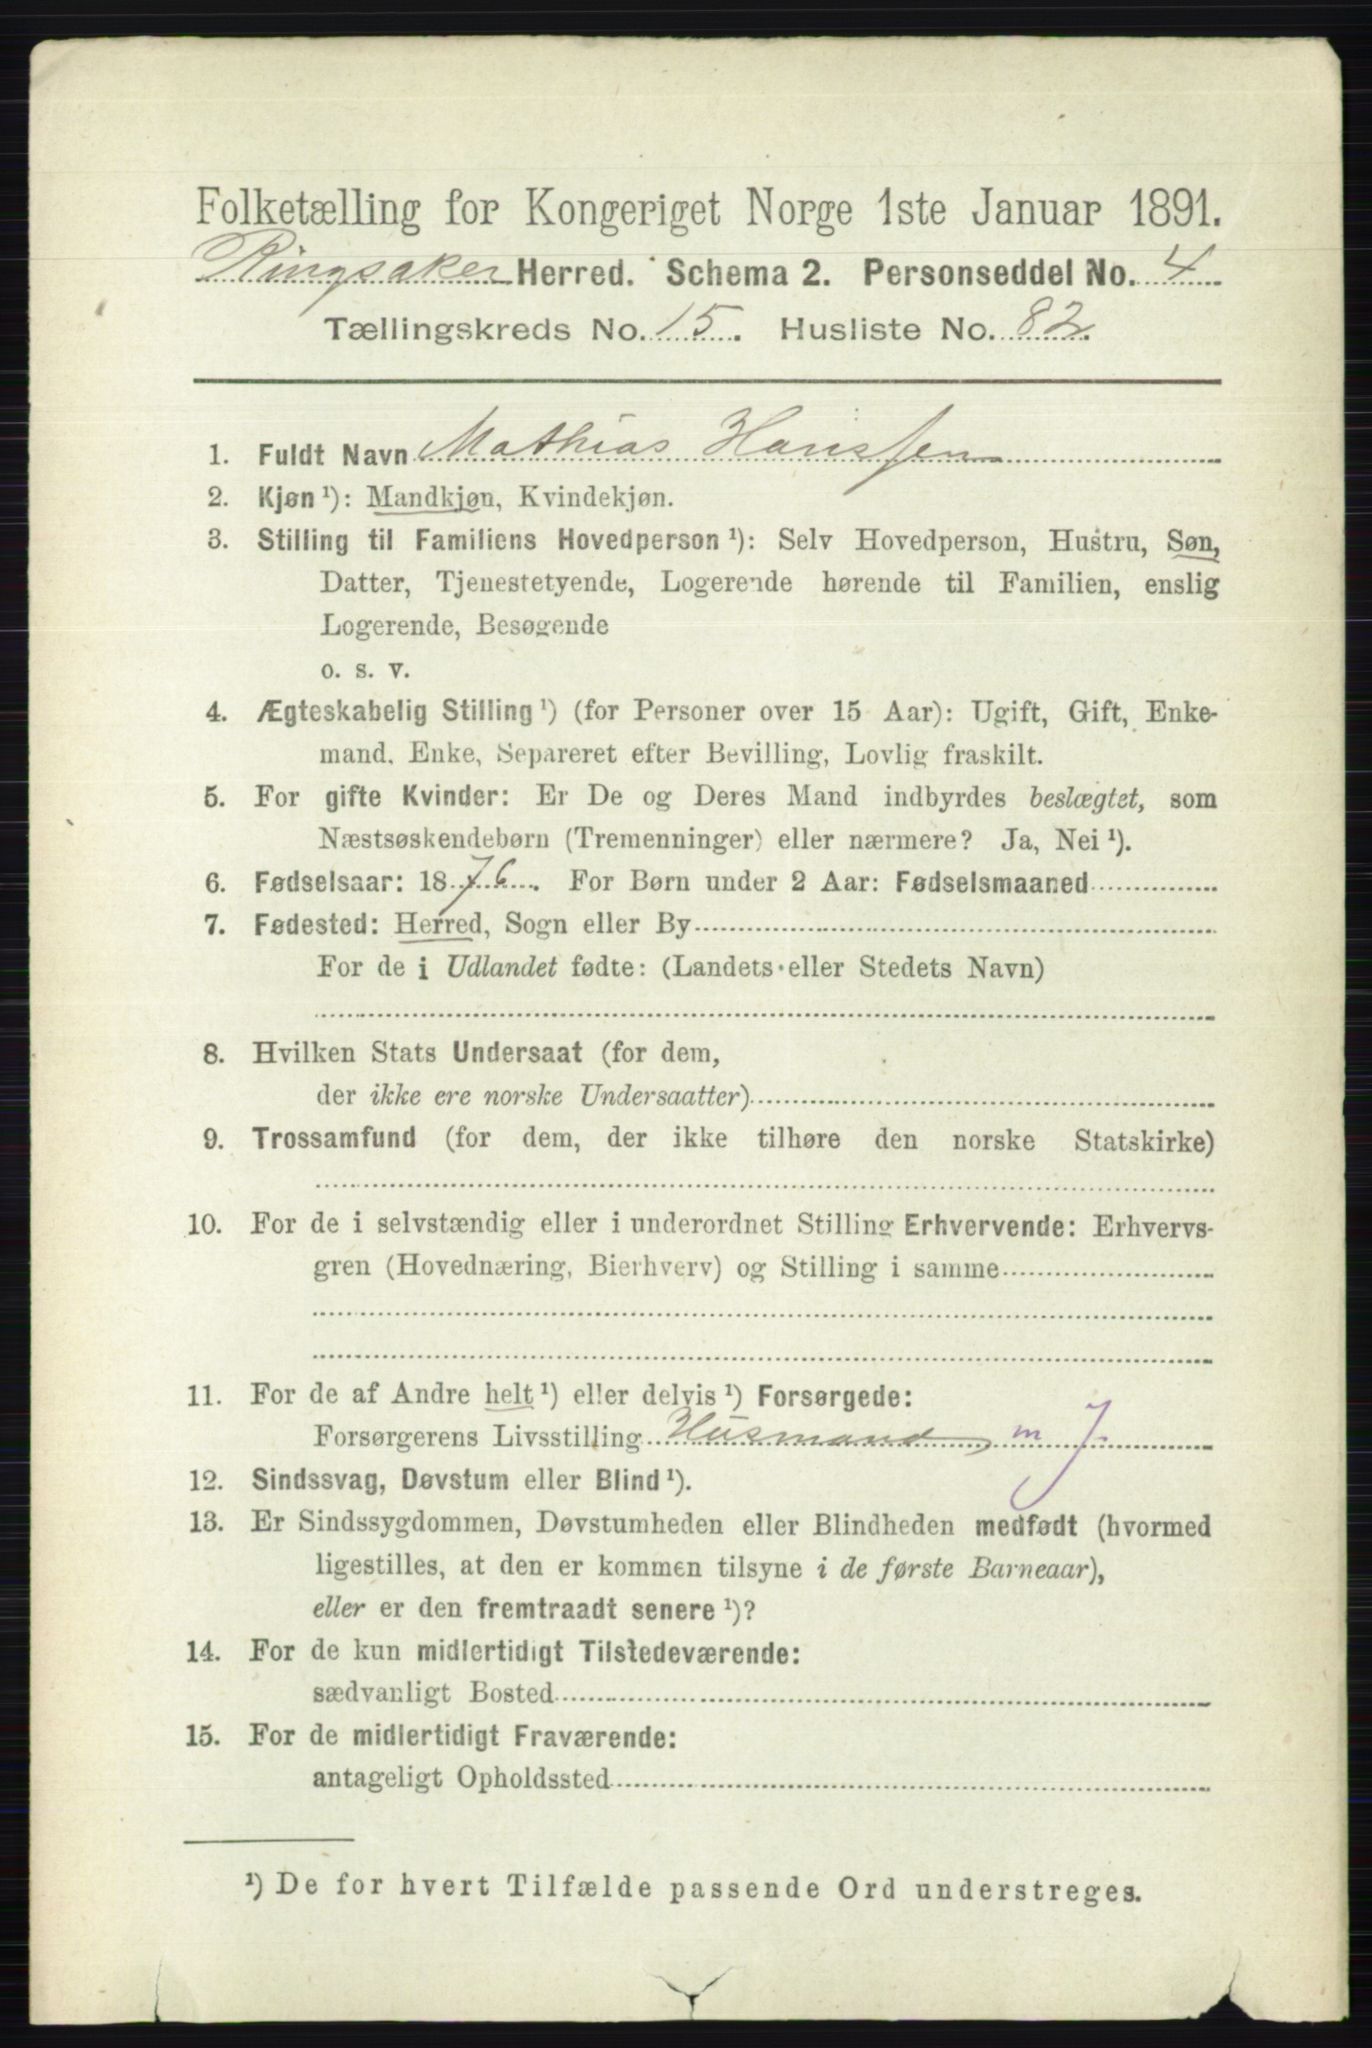 Folketælling for Kongeriget Norge 1ste Januar 1891.
Ringsaker Herred. Schema 2. Personseddel No. 4
Tællingskreds No. 15. Husliste No. 82.
1. Fuldt Navn Mathias Hanssen
2. Kjøn ¹): Mandkjøn, Kvindekjøn.
3. Stilling til Familiens Hovedperson ¹): Selv Hovedperson, Hustru, Søn,
Datter, Tjenestetyende, Logerende hørende til Familien, enslig
Logerende, Besøgende
o. s. v.
4. Ægteskabelig Stilling ¹) (for Personer over 15 Aar): Ugift, Gift, Enke-
mand, Enke, Separeret efter Bevilling, Lovlig fraskilt.
5. For gifte Kvinder: Er De og Deres Mand indbyrdes beslægtet, som
Næstsøskendebørn (Tremenninger) eller nærmere? Ja, Nei ¹).
6. Fødselsaar: 1876. For Børn under 2 Aar: Fødselsmaaned
7. Fødested: Herred, Sogn eller By
For de i Udlandet fødte: (Landets eller Stedets Navn)
8. Hvilken Stats Undersaat (for dem,
der ikke ere norske Undersaatter)
9. Trossamfund (for dem, der ikke tilhøre den norske Statskirke)
10. For de i selvstændig eller i underordnet Stilling Erhvervende: Erhvervs-
gren (Hovednæring, Bierhverv) og Stilling i samme
11. For de af Andre helt ¹) eller delvis ¹) Forsørgede:
Forsørgerens Livsstilling Husmand m J.
12. Sindssvag, Døvstum eller Blind ¹).
13. Er Sindssygdommen, Døvstumheden eller Blindheden medfødt (hvormed
ligestilles, at den er kommen tilsyne i de første Barneaar),
eller er den fremtraadt senere ¹)?
14. For de kun midlertidigt Tilstedeværende:
sædvanligt Bosted
15. For de midlertidigt Fraværende:
antageligt Opholdssted
¹) De for hvert Tilfælde passende Ord understreges.